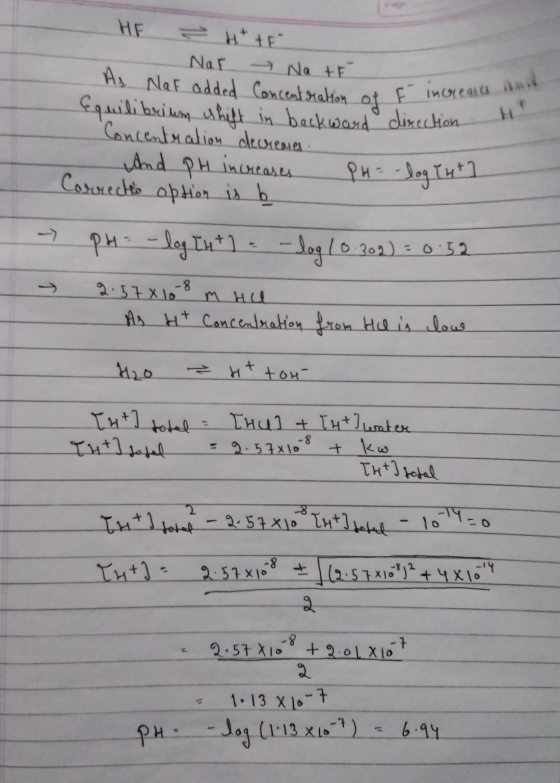 HF ⇌ H⁺ + F⁻
NaF → Na + F⁻
As NaF added Concentration of F⁻ increases and
Equilibrium shift in backward direction. H⁺
Concentration decreases.
And pH increases pH = -log[H⁺]
option is b
→ pH = -log[H⁺] = -log(0.302) = 0.52
→ 2.57×10⁻⁸ m HCl
As H⁺ Concentration from HCl is low
H₂O ⇌ H⁺ + OH⁻
[H⁺] total = [HCl] + [H⁺] water
[H⁺] total = 2.57×10⁻⁸ + kw / [H⁺] total
[H⁺] total² - 2.57×10⁻⁸ [H⁺] total - 10⁻¹⁴ = 0
[H⁺] = (2.57×10⁻⁸ ± √((2.57×10⁻⁸)² + 4×10⁻¹⁴)) / 2
= (2.57×10⁻⁸ + 2.01×10⁻⁷) / 2
= 1.13×10⁻⁷
pH = -log(1.13×10⁻⁷) = 6.94